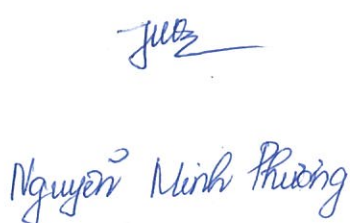 Nguyễn Minh Phương